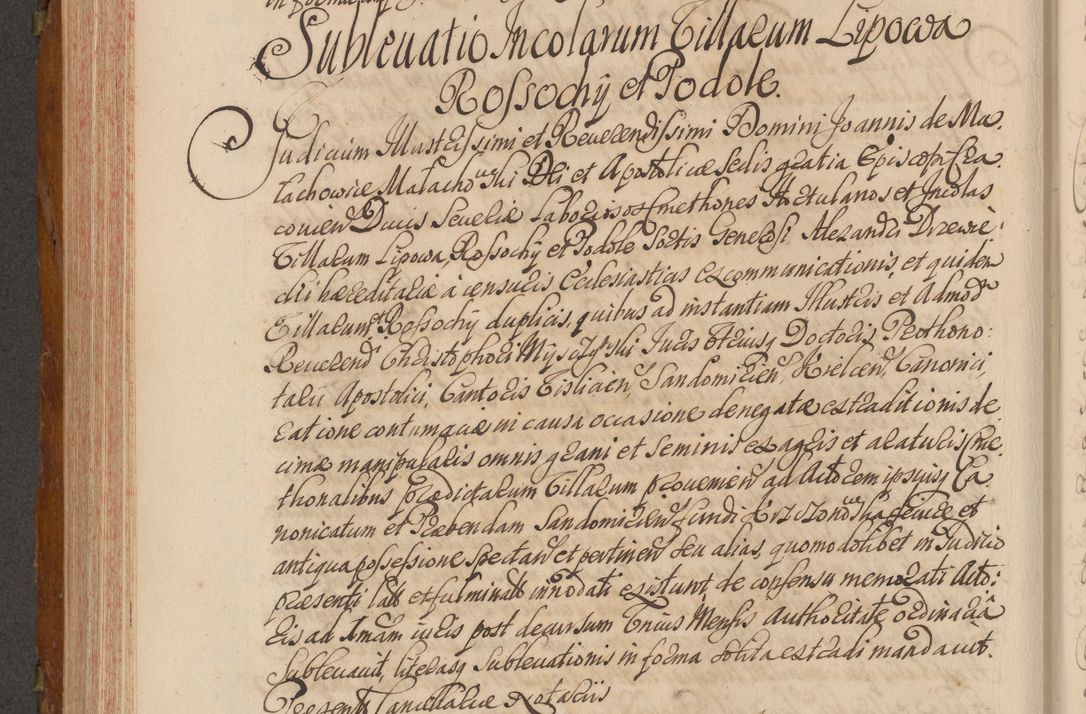 Sublevatio Incolarum Villarum Lipowa
Rossochÿ et Podole.
Judicium Illustrissimi et Reverendissimi Domini Joannis de Ma-
lachowice Malachowski Dei et Apostolicæ Sedis gratia Episcopi Cra-
covien Ducis Severiæ Laboriosos Cmethones Hortulanos et Incolas
Villarum Lipowa, Rossochÿ et Podole Sortis Generosi Alexandri Drzewie-
cki hæreditariæ à censuris Ecclesiasticis excommunicationis, et quidem
Villarum Rossochÿ duplicis, quibus ad instantiam Illustris et Admod
Reverend Christophori Mysczÿnski Juris Utriusq Doctoris Prothono-
tarii Apostolici, Cantoris Vislicien, Sandomirien, Kielcen, Canonici,
ratione contumaciæ in causa occasione denegatæ extraditionis de-
cimæ manipularis omnis grani et seminis ex agris et araturis Cme-
thonalibus prædictarum Villarum provenien ad Actorem ipsiusq Ca-
nonicatum et Præbendam Sandomirien fundi hactenus et
antiqua possessione spectan et pertinen seu alias, quomodolibet in Judicio
præsenti lat et fulminat innodati existunt, de consensu memorati Acto-
ris ad Imam juris post decursum Unius Mensis authoritate ordinariâ
Sublevavit, literasq Sublevationis in forma solita extradi mandavit.
Præsent Cancellariæ Notariis